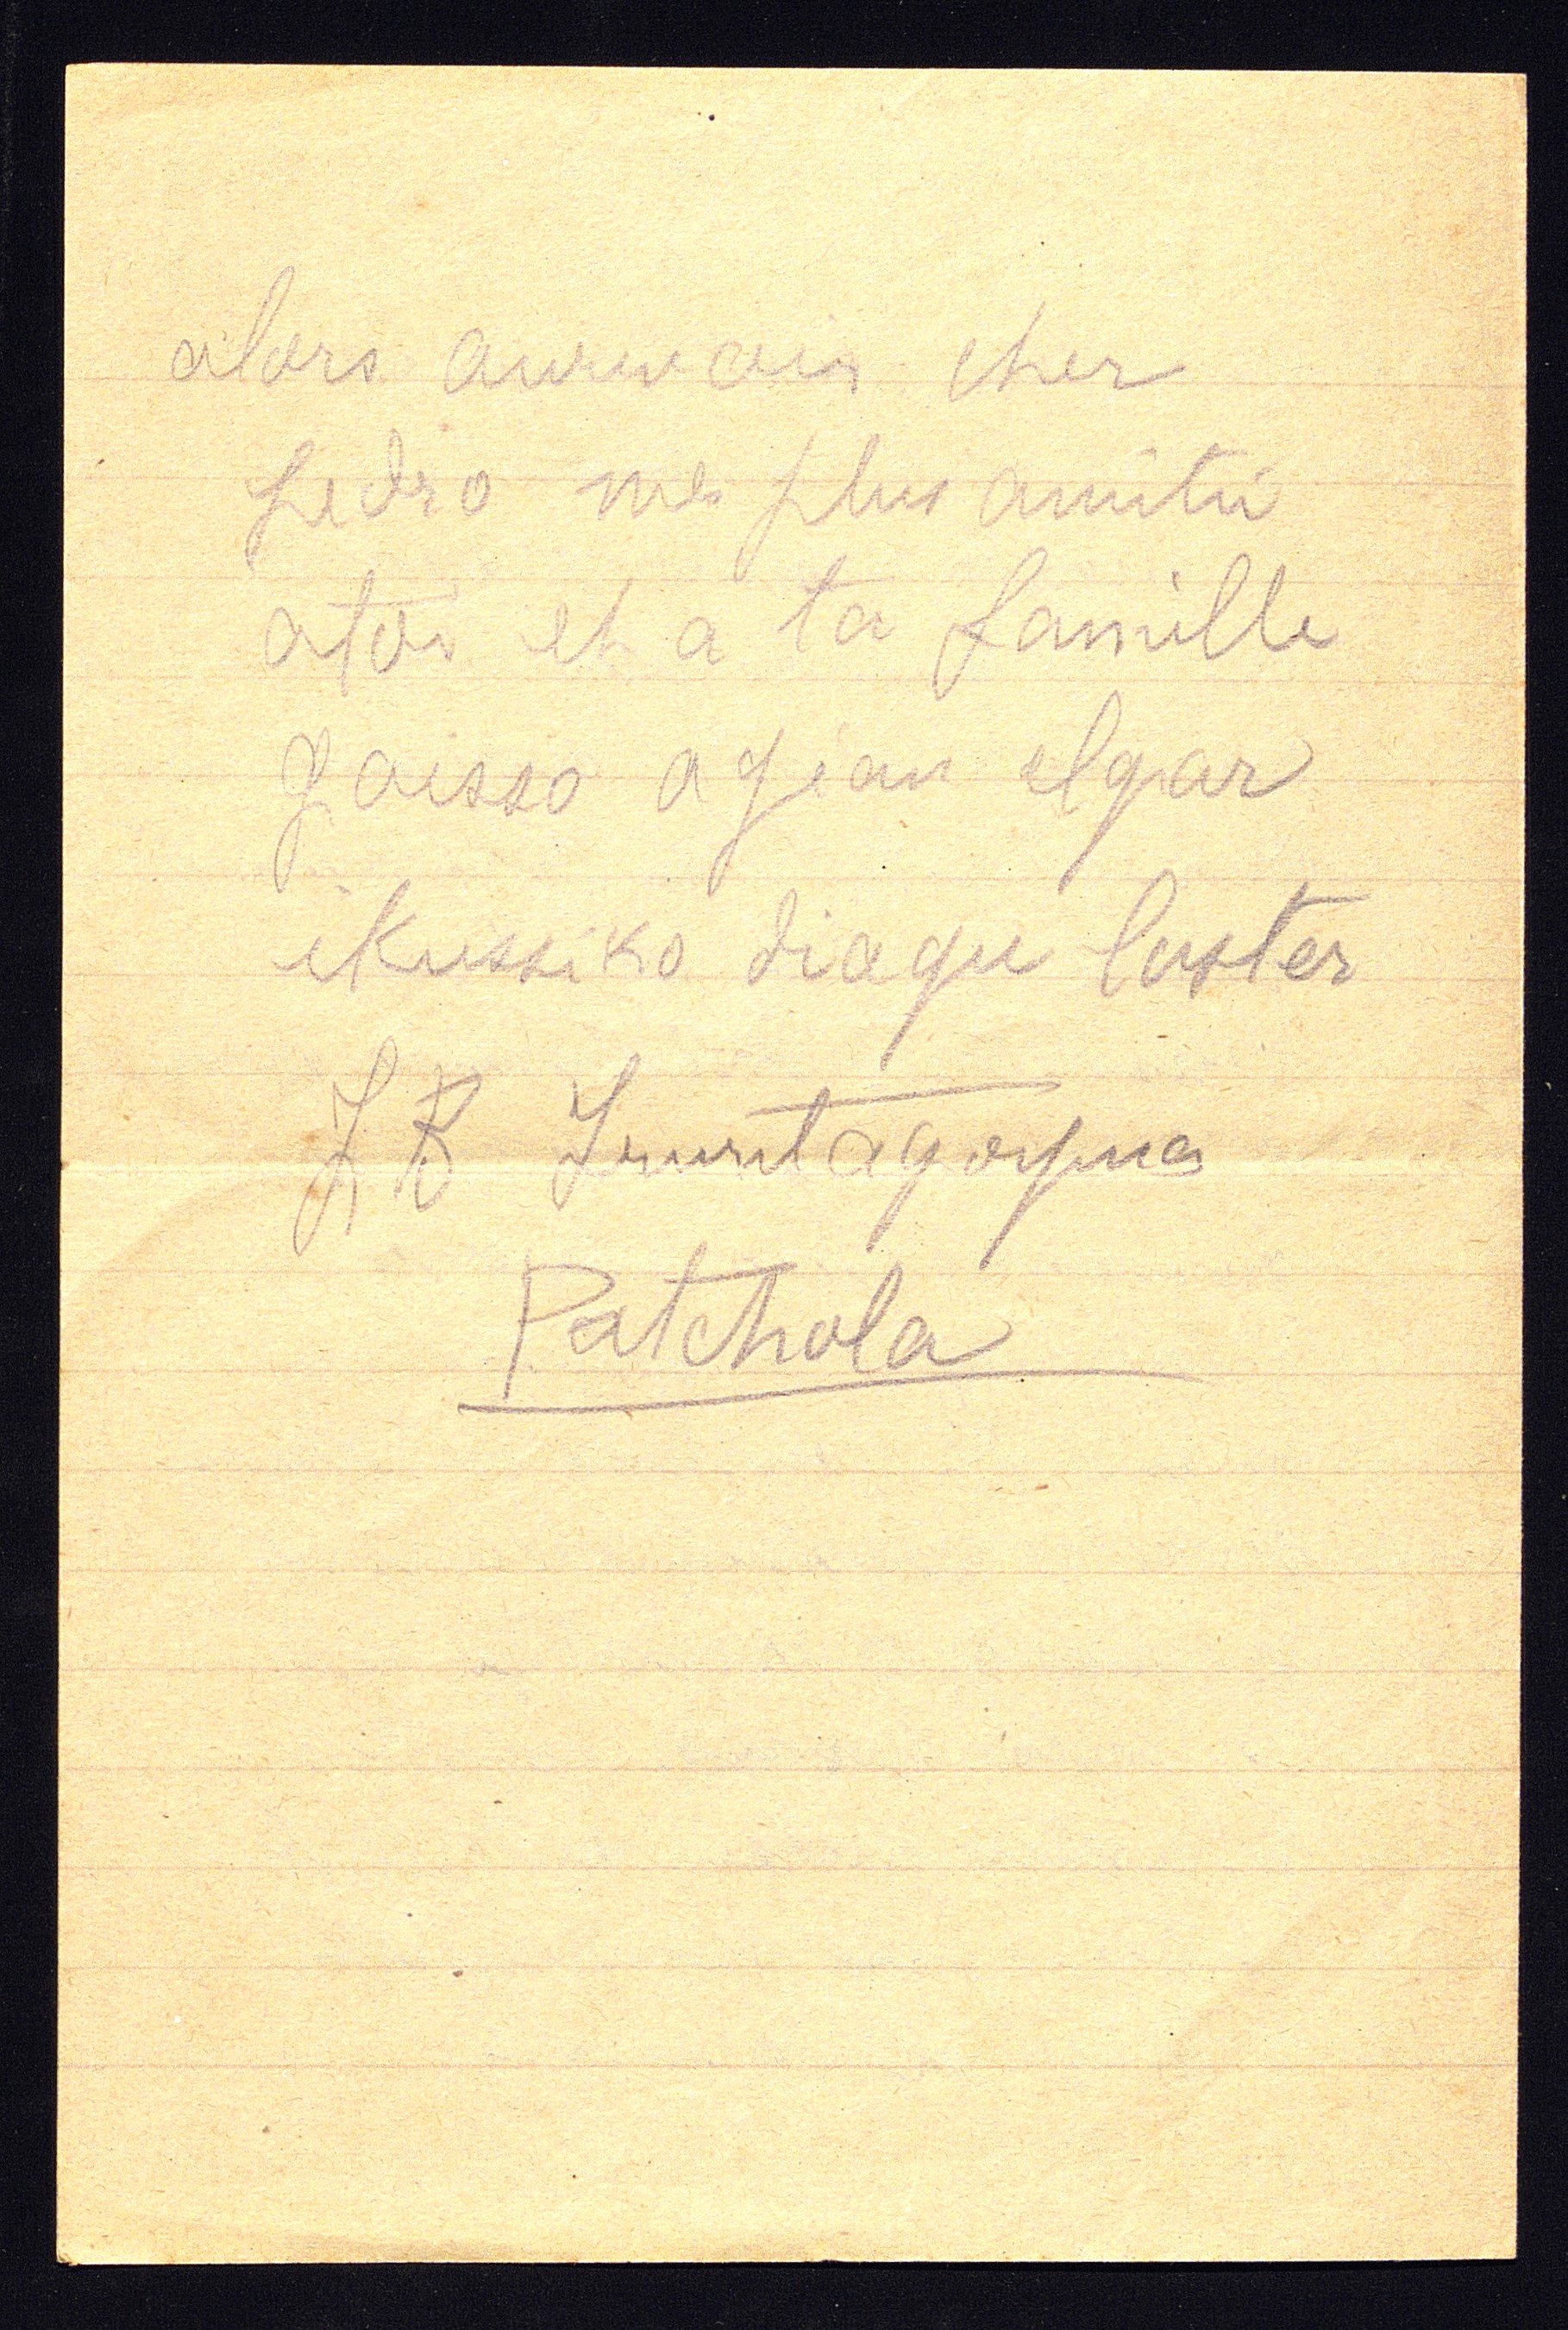 alors aurevoir cher
pedro mes plus amitie
atoi et a ta famille
gaisso agian elgar
ikussiko diague luster
J B
Patchola